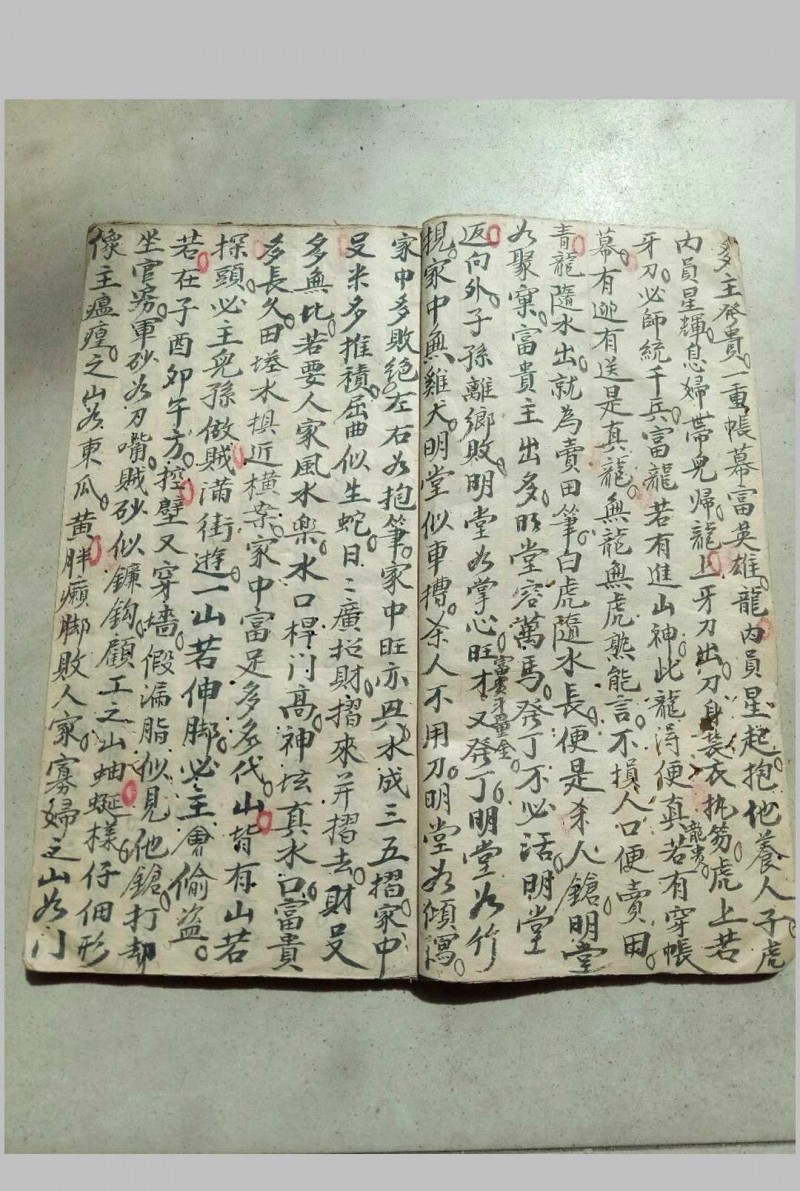 多主發貴。一重帳幕富英雄。龍內員星起抱他養人子虎
內員星輝。息婦帶兒歸。龍上牙刀出。刀身裝衣執笏。虎上若
牙刀。必師統千兵。富龍若有進山神。此龍浔便真龍貴。若有穿帳
幕。有迎有送是真龍。無龍無虎熟能言。不損人口便賣田。
青龍隨水出。就為賣田筆。白虎隨水長。便是杀人鎗。明堂
如聚窠。富貴主出多。明堂容萬馬。發丁不必活。明堂
返向外。子孫離鄉敗。明堂如掌心。旺才又發丁。明堂如竹
梘。家中無雞犬。明堂似車槽。杀人不用刀。明堂如傾瀉。
家中多敗絕。左右如抱筆。家中旺亦興。水成三五摺。家中
多推積。屈曲似生蛇。日〻廣招財。摺來并摺去。財
多無比。若要人家風水樂。水口桿门高。神坛真水口。富貴
多長久。田塆水棋近橫案。家中富足多多代。山皆有山若
探頭。必主兒孫做賊滿街遊。一山若伸脚。必主會偷盜。
若在子酉卯午方。控壁又穿墻。假漏脂似見他鎗。打却
坐官房。軍砂如刀嘴。賊砂似鐮鈎。顧工之山蚰蜒樣。仔佃形
像主瘟㾮之山如東瓜。黃胖癩脚敗人家。寡婦之山如门